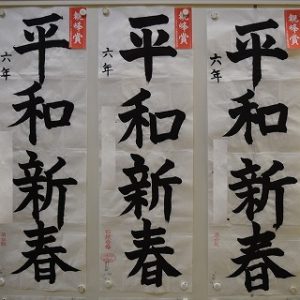 観峰賞
平和新春
六年
観峰賞
平和新春
六年
観峰賞
平和新春
六年